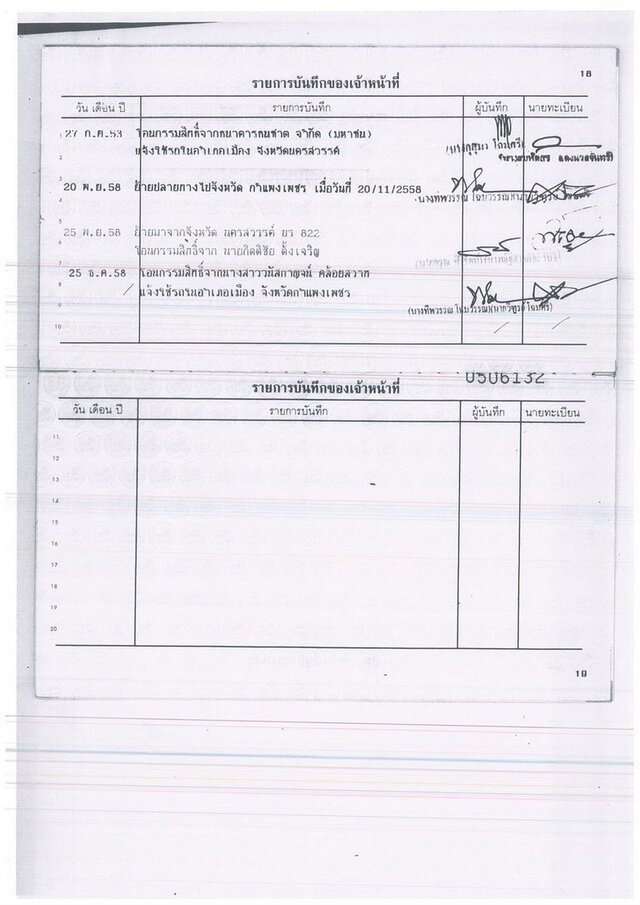 18
รายการบันทึกของเจ้าหน้าที่
วัน เดือน ปี รายการบันทึก ผู้บันทึก นายทะเบียน
27 ก.ค.53 โอนกรรมสิทธิ์จากธนาคารธนชาต จำกัด (มหาชน)
2 แจ้งใช้รถในอำเภอเมือง จังหวัดนครสวรรค์
20 พ.ย.58 ย้ายปลายทางไปจังหวัด กำแพงเพชร เมื่อวันที่ 20/11/2558
4
25 พ.ย.58 ย้ายมาจากจังหวัด นครสวรรค์ บร 822
6 โอนกรรมสิทธิ์จาก นายกิตติชัย ตั้งเจริญ
25 ธ.ค.58 โอนกรรมสิทธิ์จากนางสาว
8 แจ้งใช้รถในอำเภอเมือง จังหวัดกำแพงเพชร
10
0506132
รายการบันทึกของเจ้าหน้าที่
วัน เดือน ปี รายการบันทึก ผู้บันทึก นายทะเบียน
11
12
13
14
15
16
17
18
19
20
19